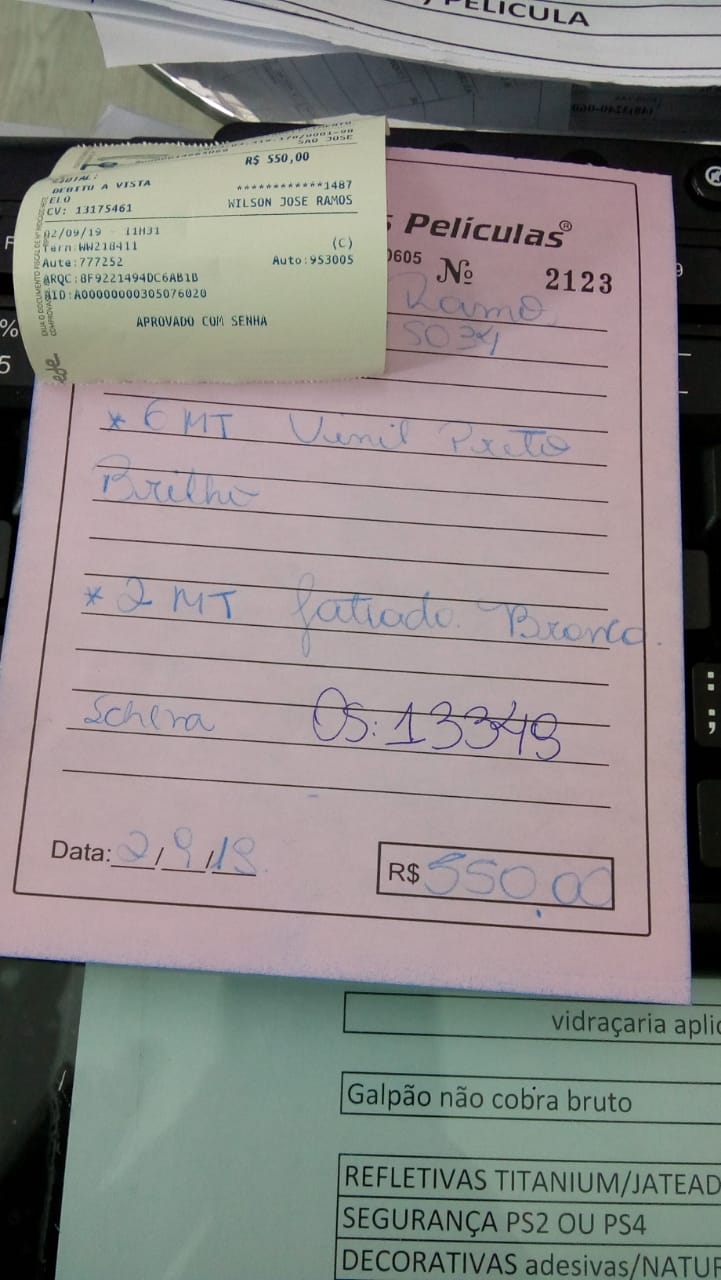 PELICULA
SAO JOSE
R$ 550,00
DEBITO A VISTA
ELO
************1487
CV: 13175461
WILSON JOSE RAMOS
02/09/19 - 11H31
Term:WW218411
(C)
Aute:777252
Auto:953005
ARQC:8F9221494DC6AB1B
AID:A00000000305076020
APROVADO COM SENHA
Películas®
0605
Nº 2123
Ramo
5034
* 6 MT Vinil Preto
Brilho
* 2 MT fatiado. Branco.
OS: 13349
Data: 2/9/19
R$ 550,00
vidraçaria aplic
Galpão não cobra bruto
REFLETIVAS TITANIUM/JATEAD
SEGURANÇA PS2 OU PS4
DECORATIVAS adesivas/NATUR